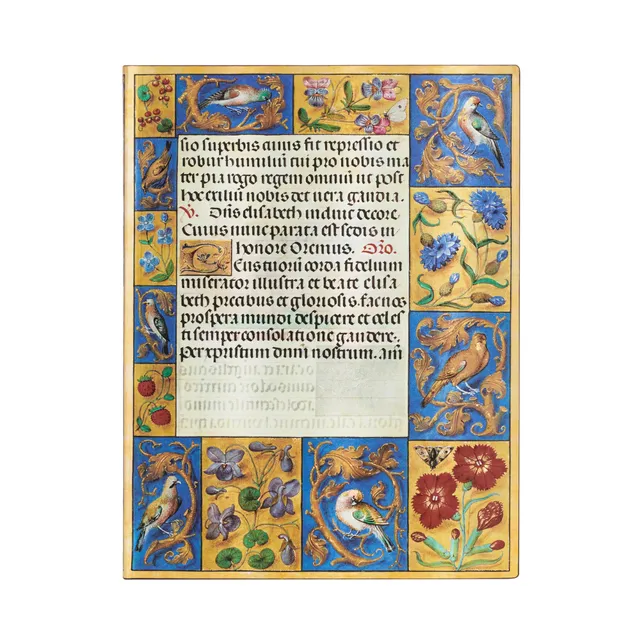 sio superbis cuius fit repressio et
robur humiliū cui pro nobis ma
ter pia rogo regem omniū ut post
hoc exiliū nobis det uera gaudia.
V. Dn̄s elisabeth induit decore.
Cuius nunc parata est sedis in
honore Oremus. Oro.
DEus tuorū corda fidelium
miserator illustra et beate elisa
beth precibus et gloriosis. fac nos
prospera mundi despicere et celes
ti semper consolatione gaudere.
Per xpistum dnm̄ nostrum. am̄